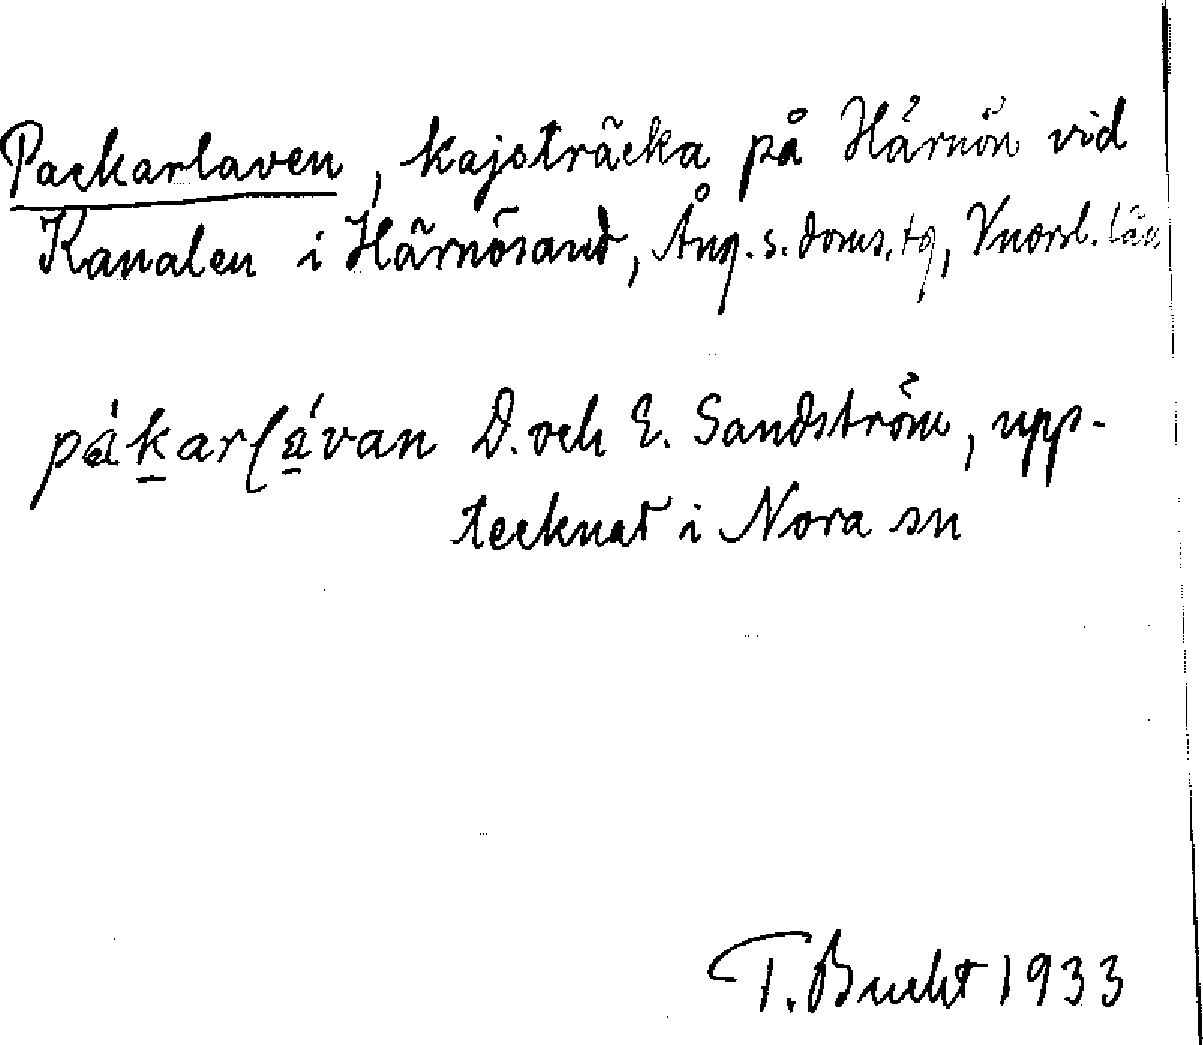 Packarlaven, kajsträcka på Härnön vid
Kanalen i Härnösand, Ång. s. doms.tg, Vnorrl. län
pákarlávan D. och E. Sandström, upp-
tecknat i Nora sn
T. Bucht 1933